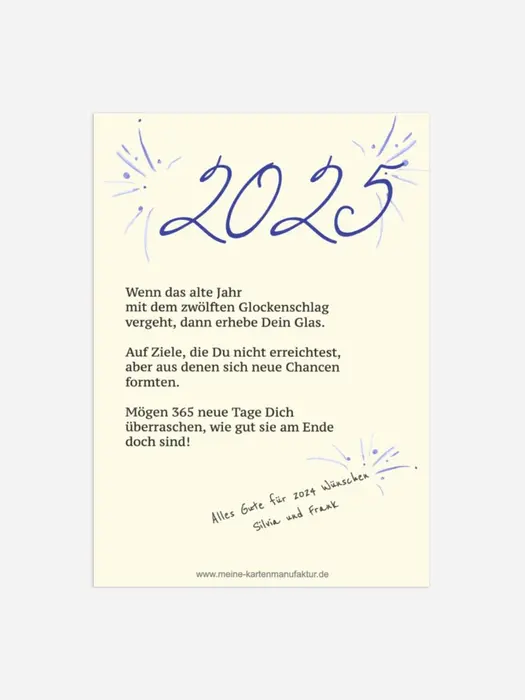 2025
Wenn das alte Jahr
mit dem zwölften Glockenschlag
vergeht, dann erhebe Dein Glas.
Auf Ziele, die Du nicht erreichtest,
aber aus denen sich neue Chancen
formten.
Mögen 365 neue Tage Dich
überraschen, wie gut sie am Ende
doch sind!
Alles Gute für 2024 Wünschen
Silvia und Frank
www.meine-kartenmanufaktur.de